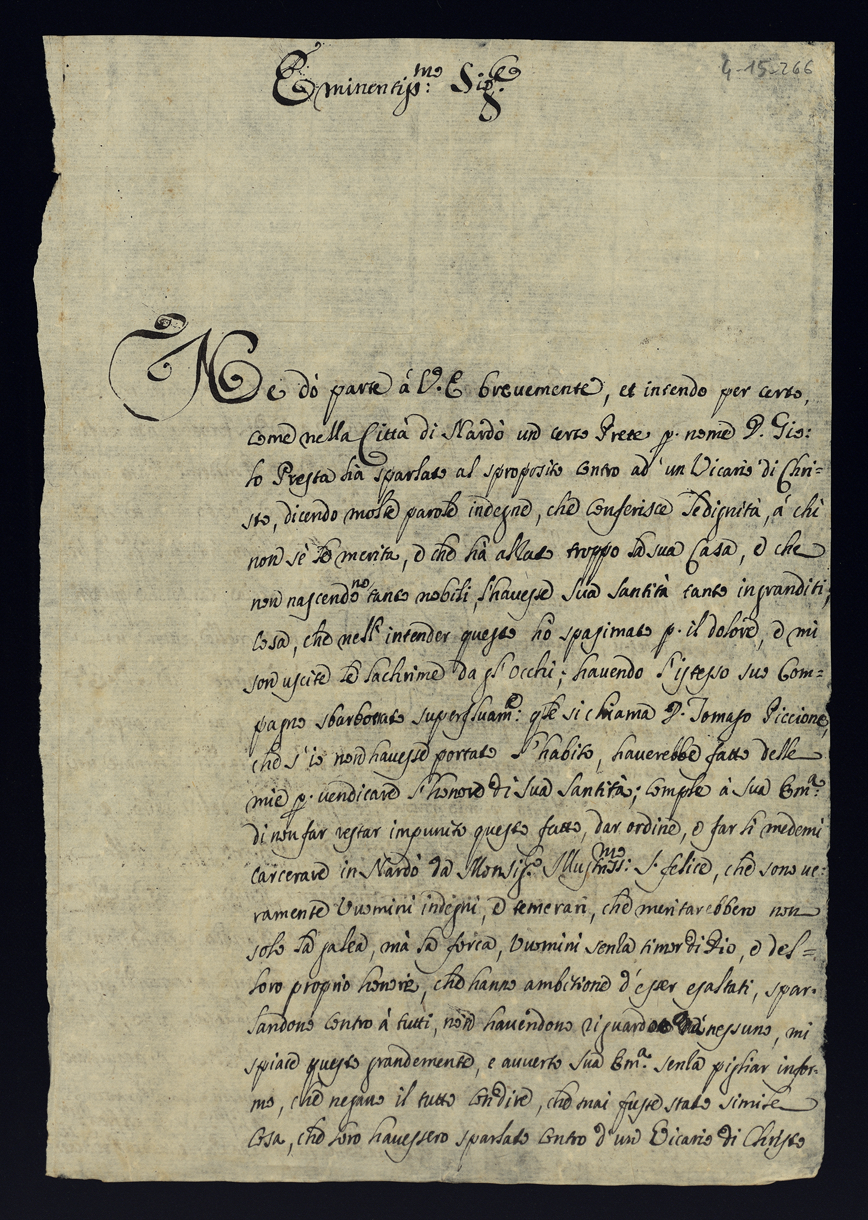 4-15-266
Eminentiss.mo Sig.re
Ne dò parte á V.E brevemente, et intendo per certo,
come nella Città di Nardò un certo Prete p. nome D. Gio:
lo Presta hà sparlato al sproposito contro ad un Vicario di Chri=
sto, dicendo molte parole indegne, che conferisce le dignità, á chi
non sè le merita, e che hà alzato troppo la sua Casa, e che
non nascendono tanto nobili, l'havesse Sua Santità tanto ingranditi;
cosa, che nell' intender questo hò spasimato p. il dolore, e mi
son uscite le lachrime da gl'occhi; havendo l'istesso suo Com=
pagno sbarbottato superfluam.te: q.le si chiama D. Tomaso Piccione,
che s'io non havesse portato l'habito, haverebbe fatto delle
mie p. vendicare l'honore di Sua Santità; comple à Sua Em.a
di non far restar impunito questo fatto, dar ordine, e far li medemi
carcerare in Nardò da Monsig.re Illustriss.mo: S. felice, che sono ve:
ramente Uuomini indegni, e temerari, che meritarebbero non
solo la galea, mà la forca, Uuomini senza timor di Dio, e del=
loro proprio honore, che hanno ambitione d'esser esaltati, spar=
landono contro á tutti, non havendono riguardo nessuno, mi
spiace questo grandemente, e avverto Sua Em.a senza pigliar infor=
mo, che negano il tutto con dire, che mai fusse stato simile
cosa, che loro havessero sparlato contro d'un Vicario di Christo